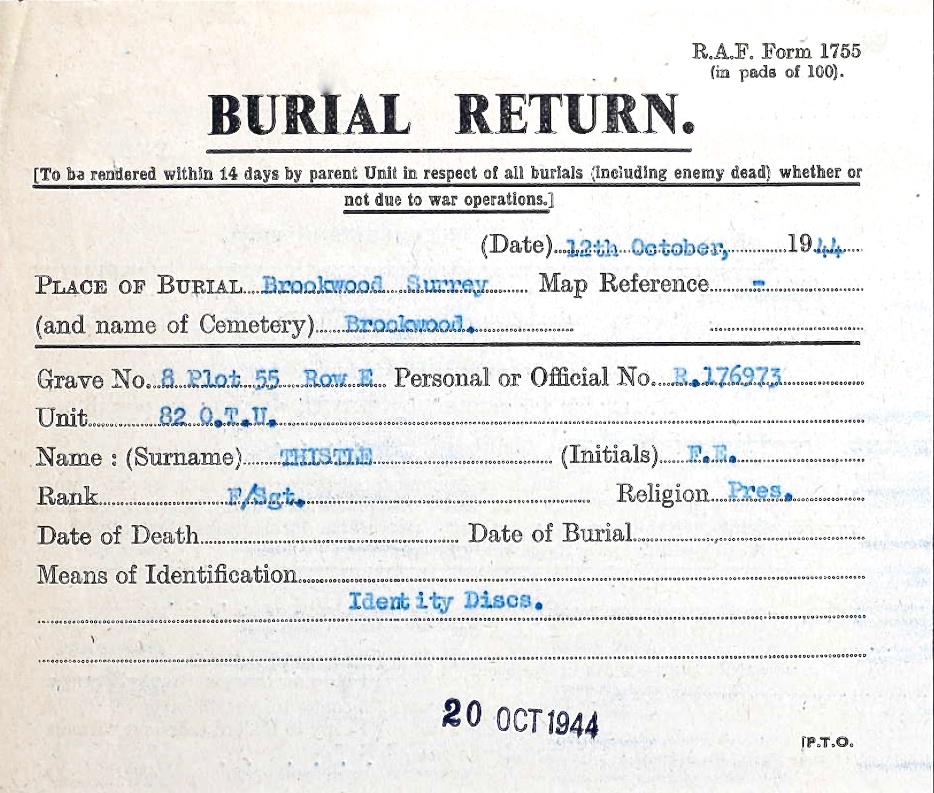 R.A.F. Form 1755
(in pads of 100).
BURIAL RETURN.
[To be rendered within 14 days by parent Unit in respect of all burials (including enemy dead) whether or
not due to war operations.]
(Date) 12th October, 1944
PLACE OF BURIAL Brookwood Surrey Map Reference -
(and name of Cemetery) Brookwood.
Grave No. 8 Plot 55 Row E Personal or Official No. R.176973
Unit 82 O.T.U.
Name : (Surname) THISTLE (Initials) F.E.
Rank F/Sgt. Religion Pres.
Date of Death Date of Burial
Means of Identification
Identity Discs.
20 OCT 1944
[P.T.O.